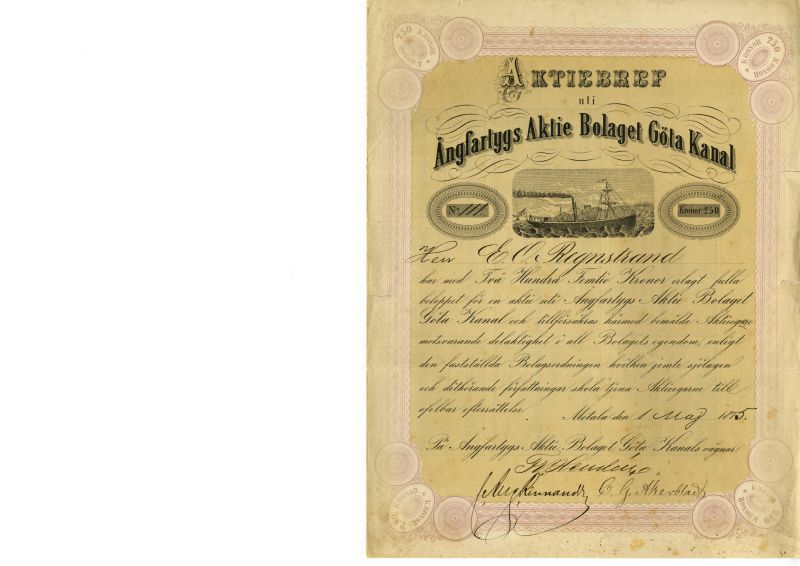 250 KRONOR
KRONOR
KRONOR 250
KRONOR
AKTIEBREF
uti
Ångfartygs Aktie Bolaget Göta Kanal
No. 111
Kronor 250
Herr E. O. Regnstrand
har med Två Hundra Femtio Kronor erlagt fulla
beloppet för en aktie uti Ångfartygs Aktie Bolaget
Göta Kanal och tillförsäkras härmed bemälde Aktieegare
motsvarande delaktighet i all Bolagets egendom, enligt
den fastställda Bolagsordningen hvilken jemte sjölagen
och dithörande författningar skola tjena Aktieegarne till
ofelbar efterrättelse.
Motala den 1 Maj 1875.
På Ångfartygs Aktie Bolaget Göta Kanals vägnar
C. G. Åkerblad
KRONOR 250
KRONOR
250 KRONOR
KRONOR